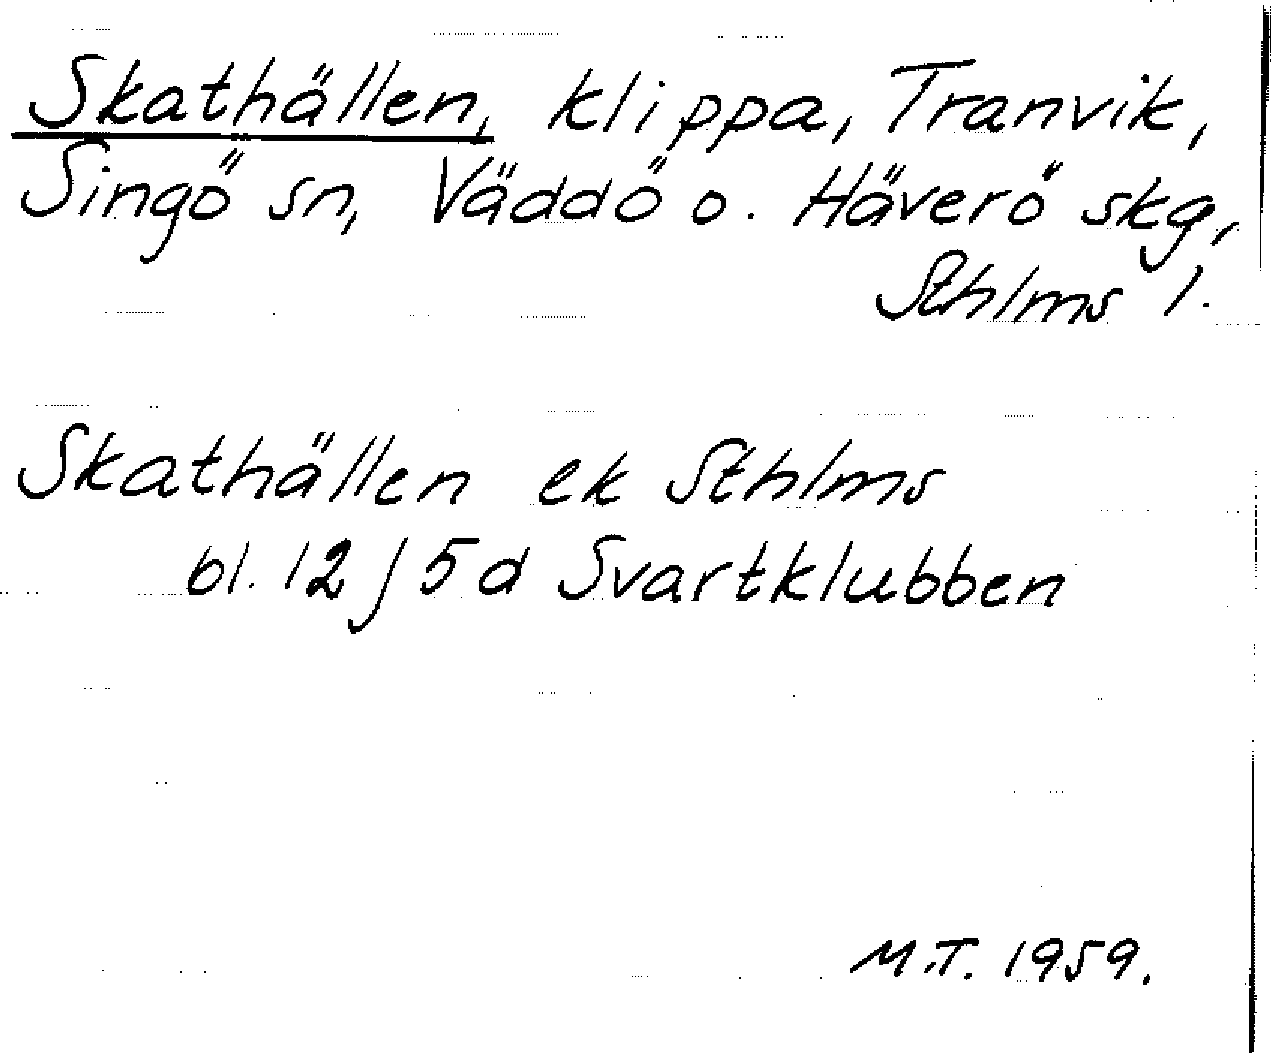 Skathällen, klippa, Tranvik,
Singö sn, Väddö o. Häverö skg,
Sthlms l.
Skathällen ek Sthlms
bl. 12 J 5 d Svartklubben
M.T. 1959.